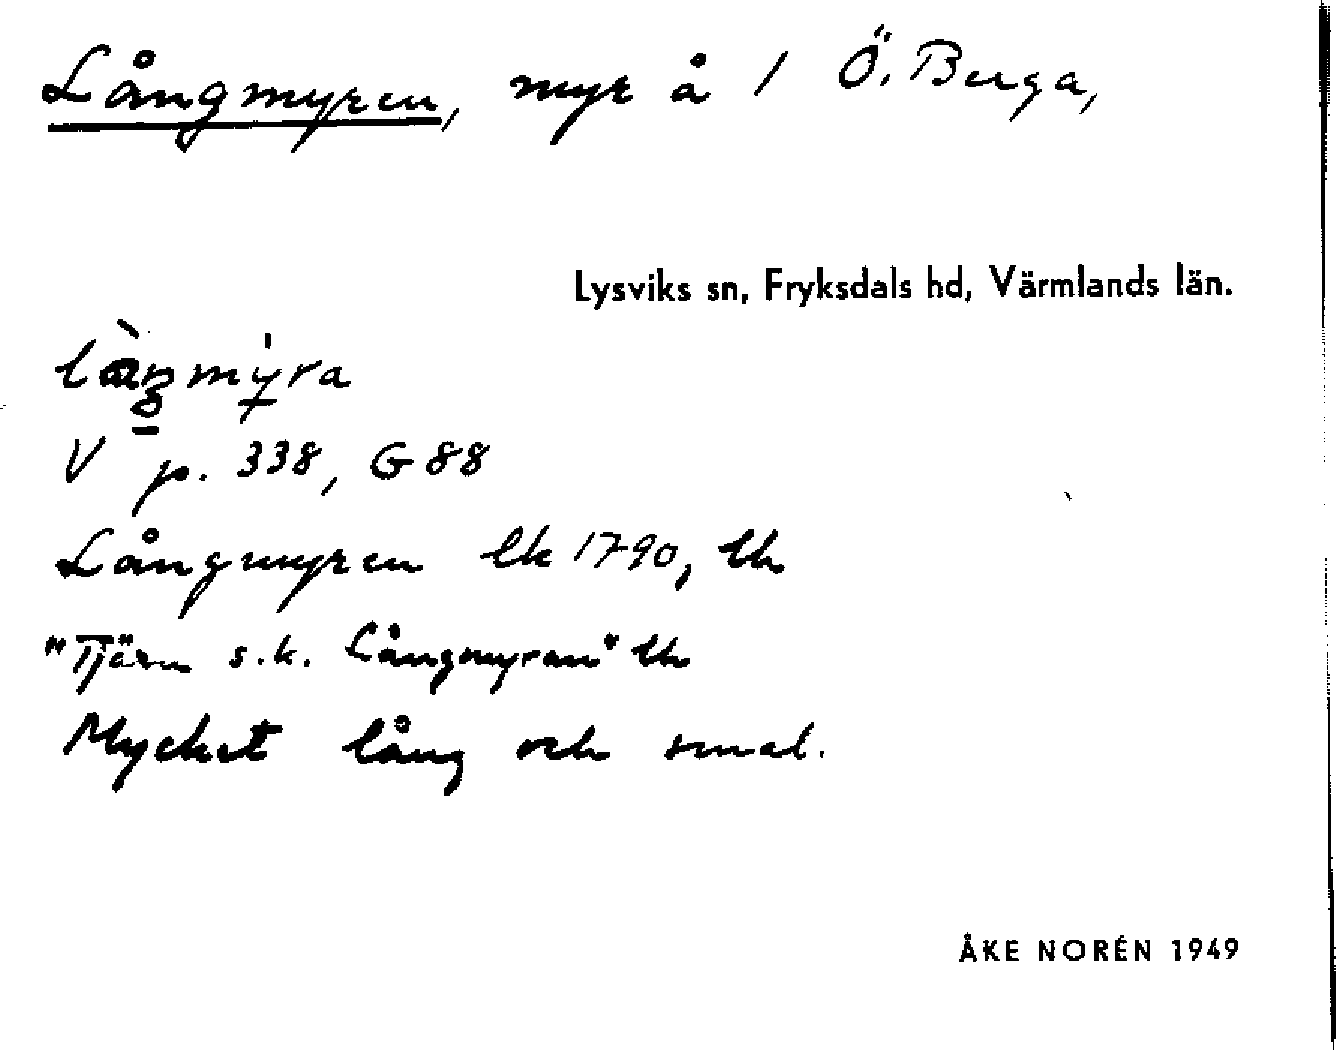 Långmyren, myr å 1 Ö. Berga,
Lysviks sn, Fryksdals hd, Värmlands län.
V p. 338, G 88
Långmyren lk 1790, lk
"Tjärn s.k. Långmyran" lk
Mycket lång och smal.
ÅKE NORÉN 1949